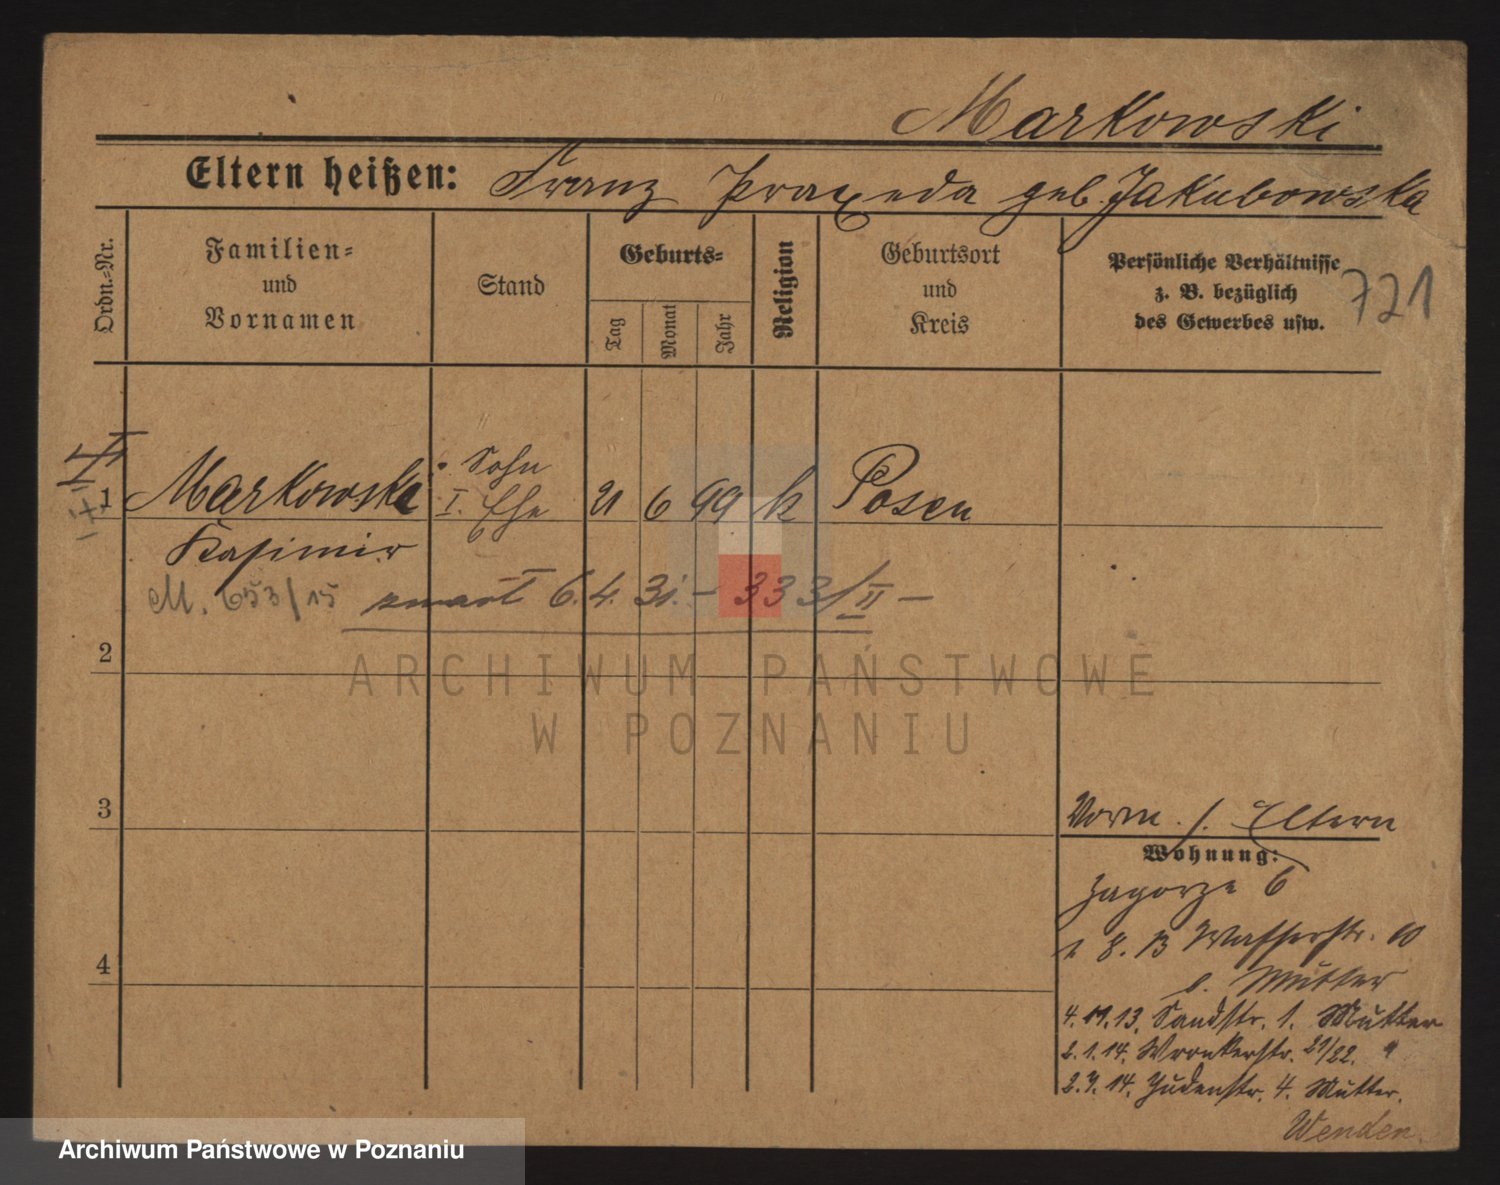 Markowski
Eltern heißen: Franz Praxeda geb. Jakubowska
Ordn.-Nr.
Familien-
und
Vornamen
Stand
Geburts-
Tag
Monat
Jahr
Religion
Geburtsort
und
Kreis
Persönliche Verhältnisse
z. B. bezüglich
des Gewerbes usw.
721
1 Markowski Sohn 21 6 99 k Posen
I. Ehe
Kasimir
M. 653/15 zmarł 6.4.31. – 333/II –
2
ARCHIWUM PAŃSTWOWE
W POZNANIU
3
4
Vorm. s. Eltern
Wohnung:
Zagorze 6
1 8. 13 Wasserstr. 10
b. Mutter
4. 11. 13. Sandstr. 1. Mutter
2. 1. 14. Wronkerstr. 21/22. "
2. 7. 14. Judenstr. 4. Mutter.
Wenden
Archiwum Państwowe w Poznaniu